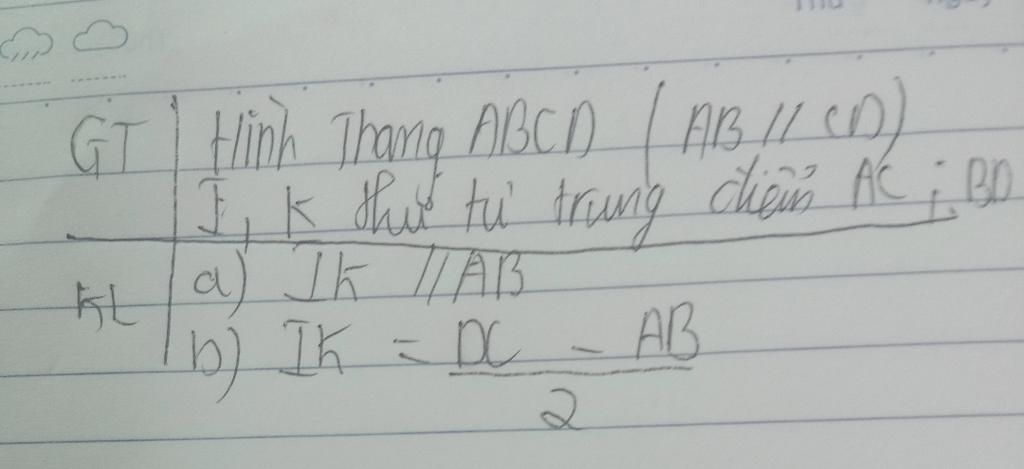 GT | Hình Thang ABCD (AB // CD)
I, K thứ tự trung điểm AC ; BD
KL | a) IK // AB
b) IK = DC - AB
2